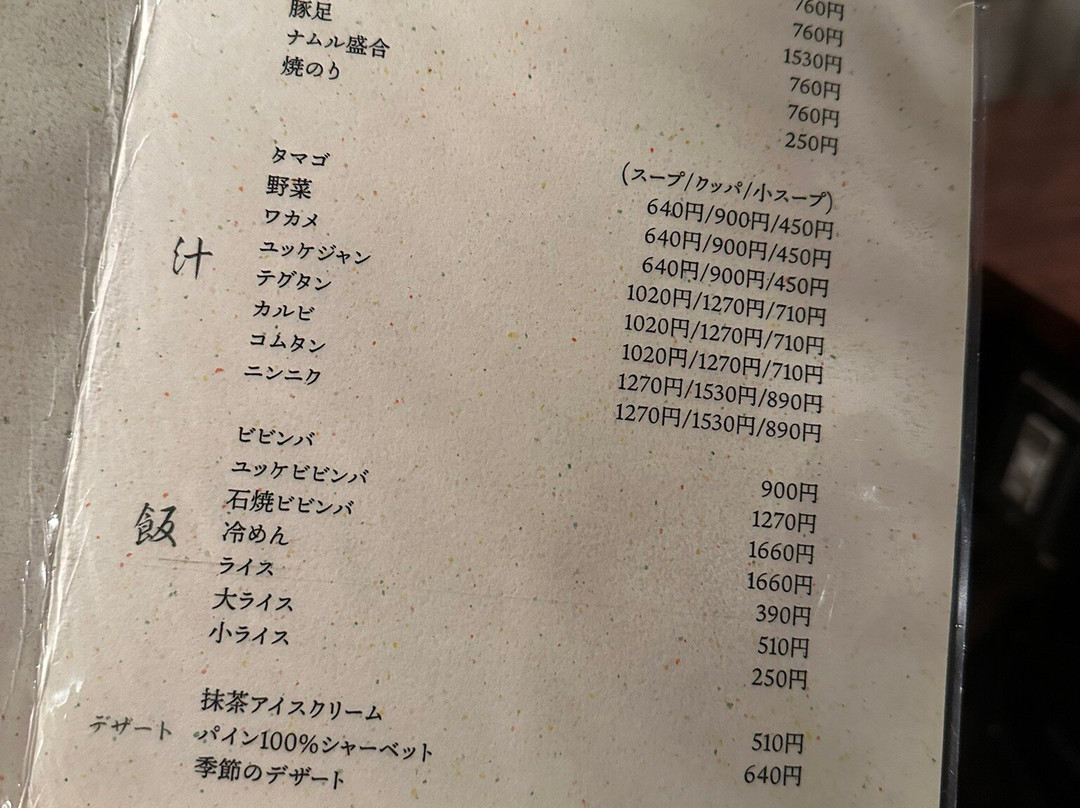 760円
760円
1530円
豚足 760円
ナムル盛合 760円
焼のり 250円
(スープ/クッパ/小スープ)
汁
タマゴ 640円/900円/450円
野菜 640円/900円/450円
ワカメ 640円/900円/450円
ユッケジャン 1020円/1270円/710円
テグタン 1020円/1270円/710円
カルビ 1020円/1270円/710円
コムタン 1270円/1530円/890円
ニンニク 1270円/1530円/890円
飯
ビビンバ 900円
ユッケビビンバ 1270円
石焼ビビンバ 1660円
冷めん 1660円
ライス 390円
大ライス 510円
小ライス 250円
デザート
抹茶アイスクリーム 510円
パイン100%シャーベット 640円
季節のデザート